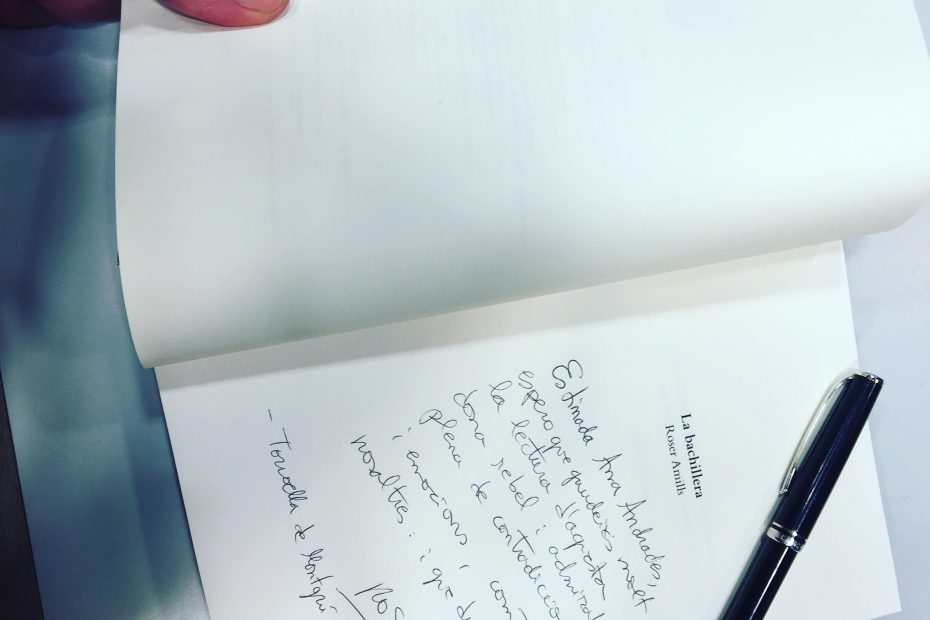 La bachillera
Roser Amills
Estimada Anna Andrades,
espero que gaudeixis molt
la lectura d'aquesta
dona rebel i admirabl
plena de contradiccio
i emocions i com
nosaltres: i que d
Ros
- Torroella de Montgrí